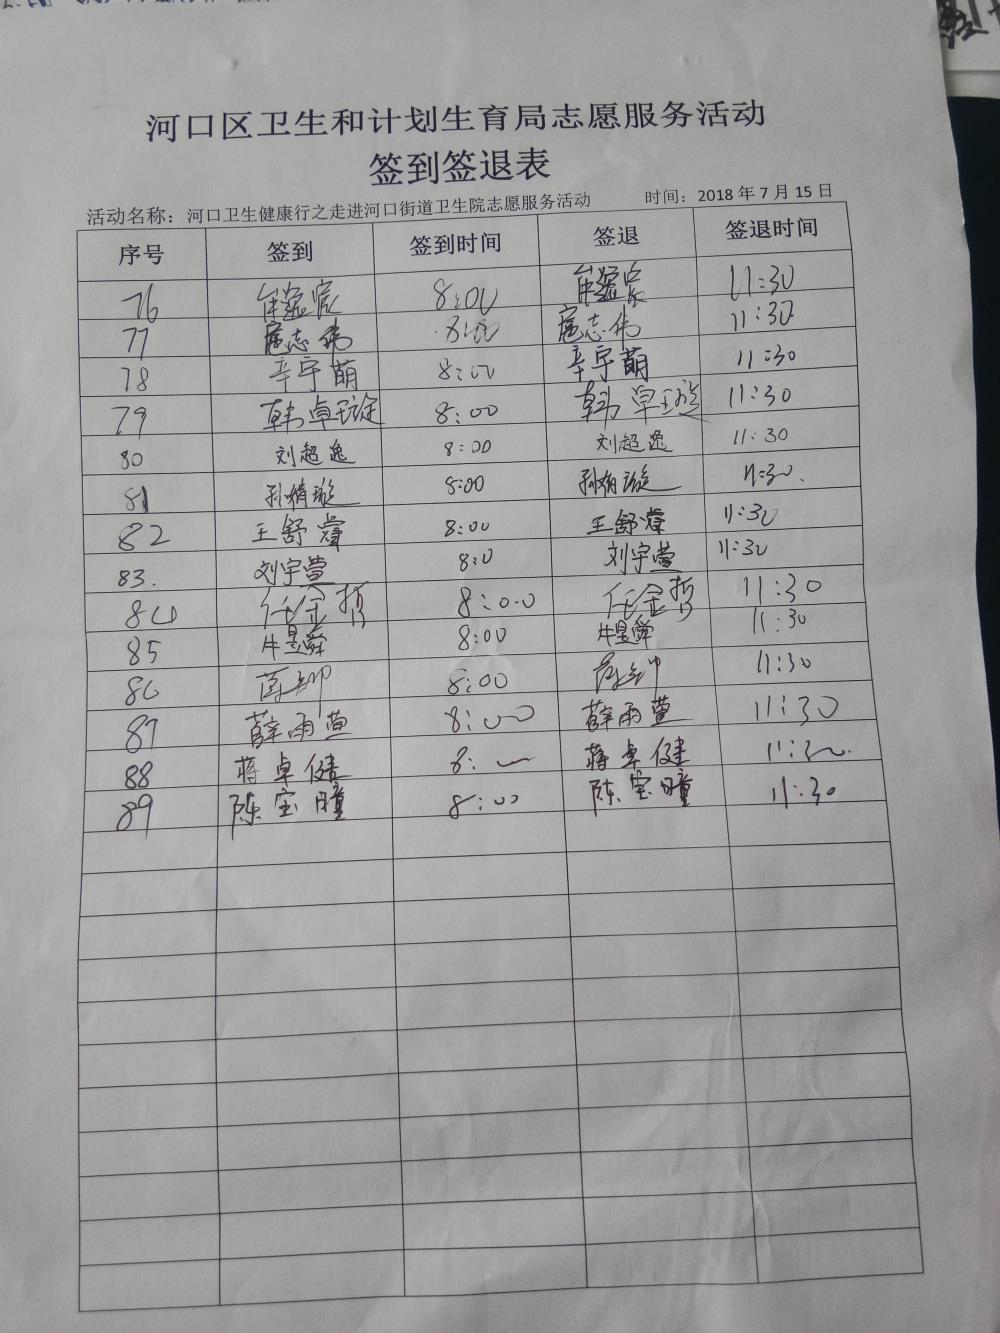 河口区卫生和计划生育局志愿服务活动
签到签退表
活动名称：河口卫生健康行之走进河口街道卫生院志愿服务活动 时间：2018 年 7 月 15 日
序号 签到 签到时间 签退 签退时间
76 8:00 11:30
77 扈志伟 8:00 扈志伟 11:30
78 辛宇萌 8:00 辛宇萌 11:30
79 韩卓璇 8:00 韩卓璇 11:30
80 刘超逸 8:00 刘超逸 11:30
81 孙婧璇 8:00 孙婧璇 11:30.
82 王舒 8:00 王舒 11:30
83. 刘宇萱 8:0 刘宇萱 11:30
84 任金哲 8:00 任金哲 11:30
85 牛昱舜 8:00 牛昱舜 11:30
86 8:00 11:30
87 薛雨萱 8:00 薛雨萱 11:30
88 蒋卓健 8: 蒋卓健 11:30.
89 陈宝瞳 8:00 陈宝瞳 11:30